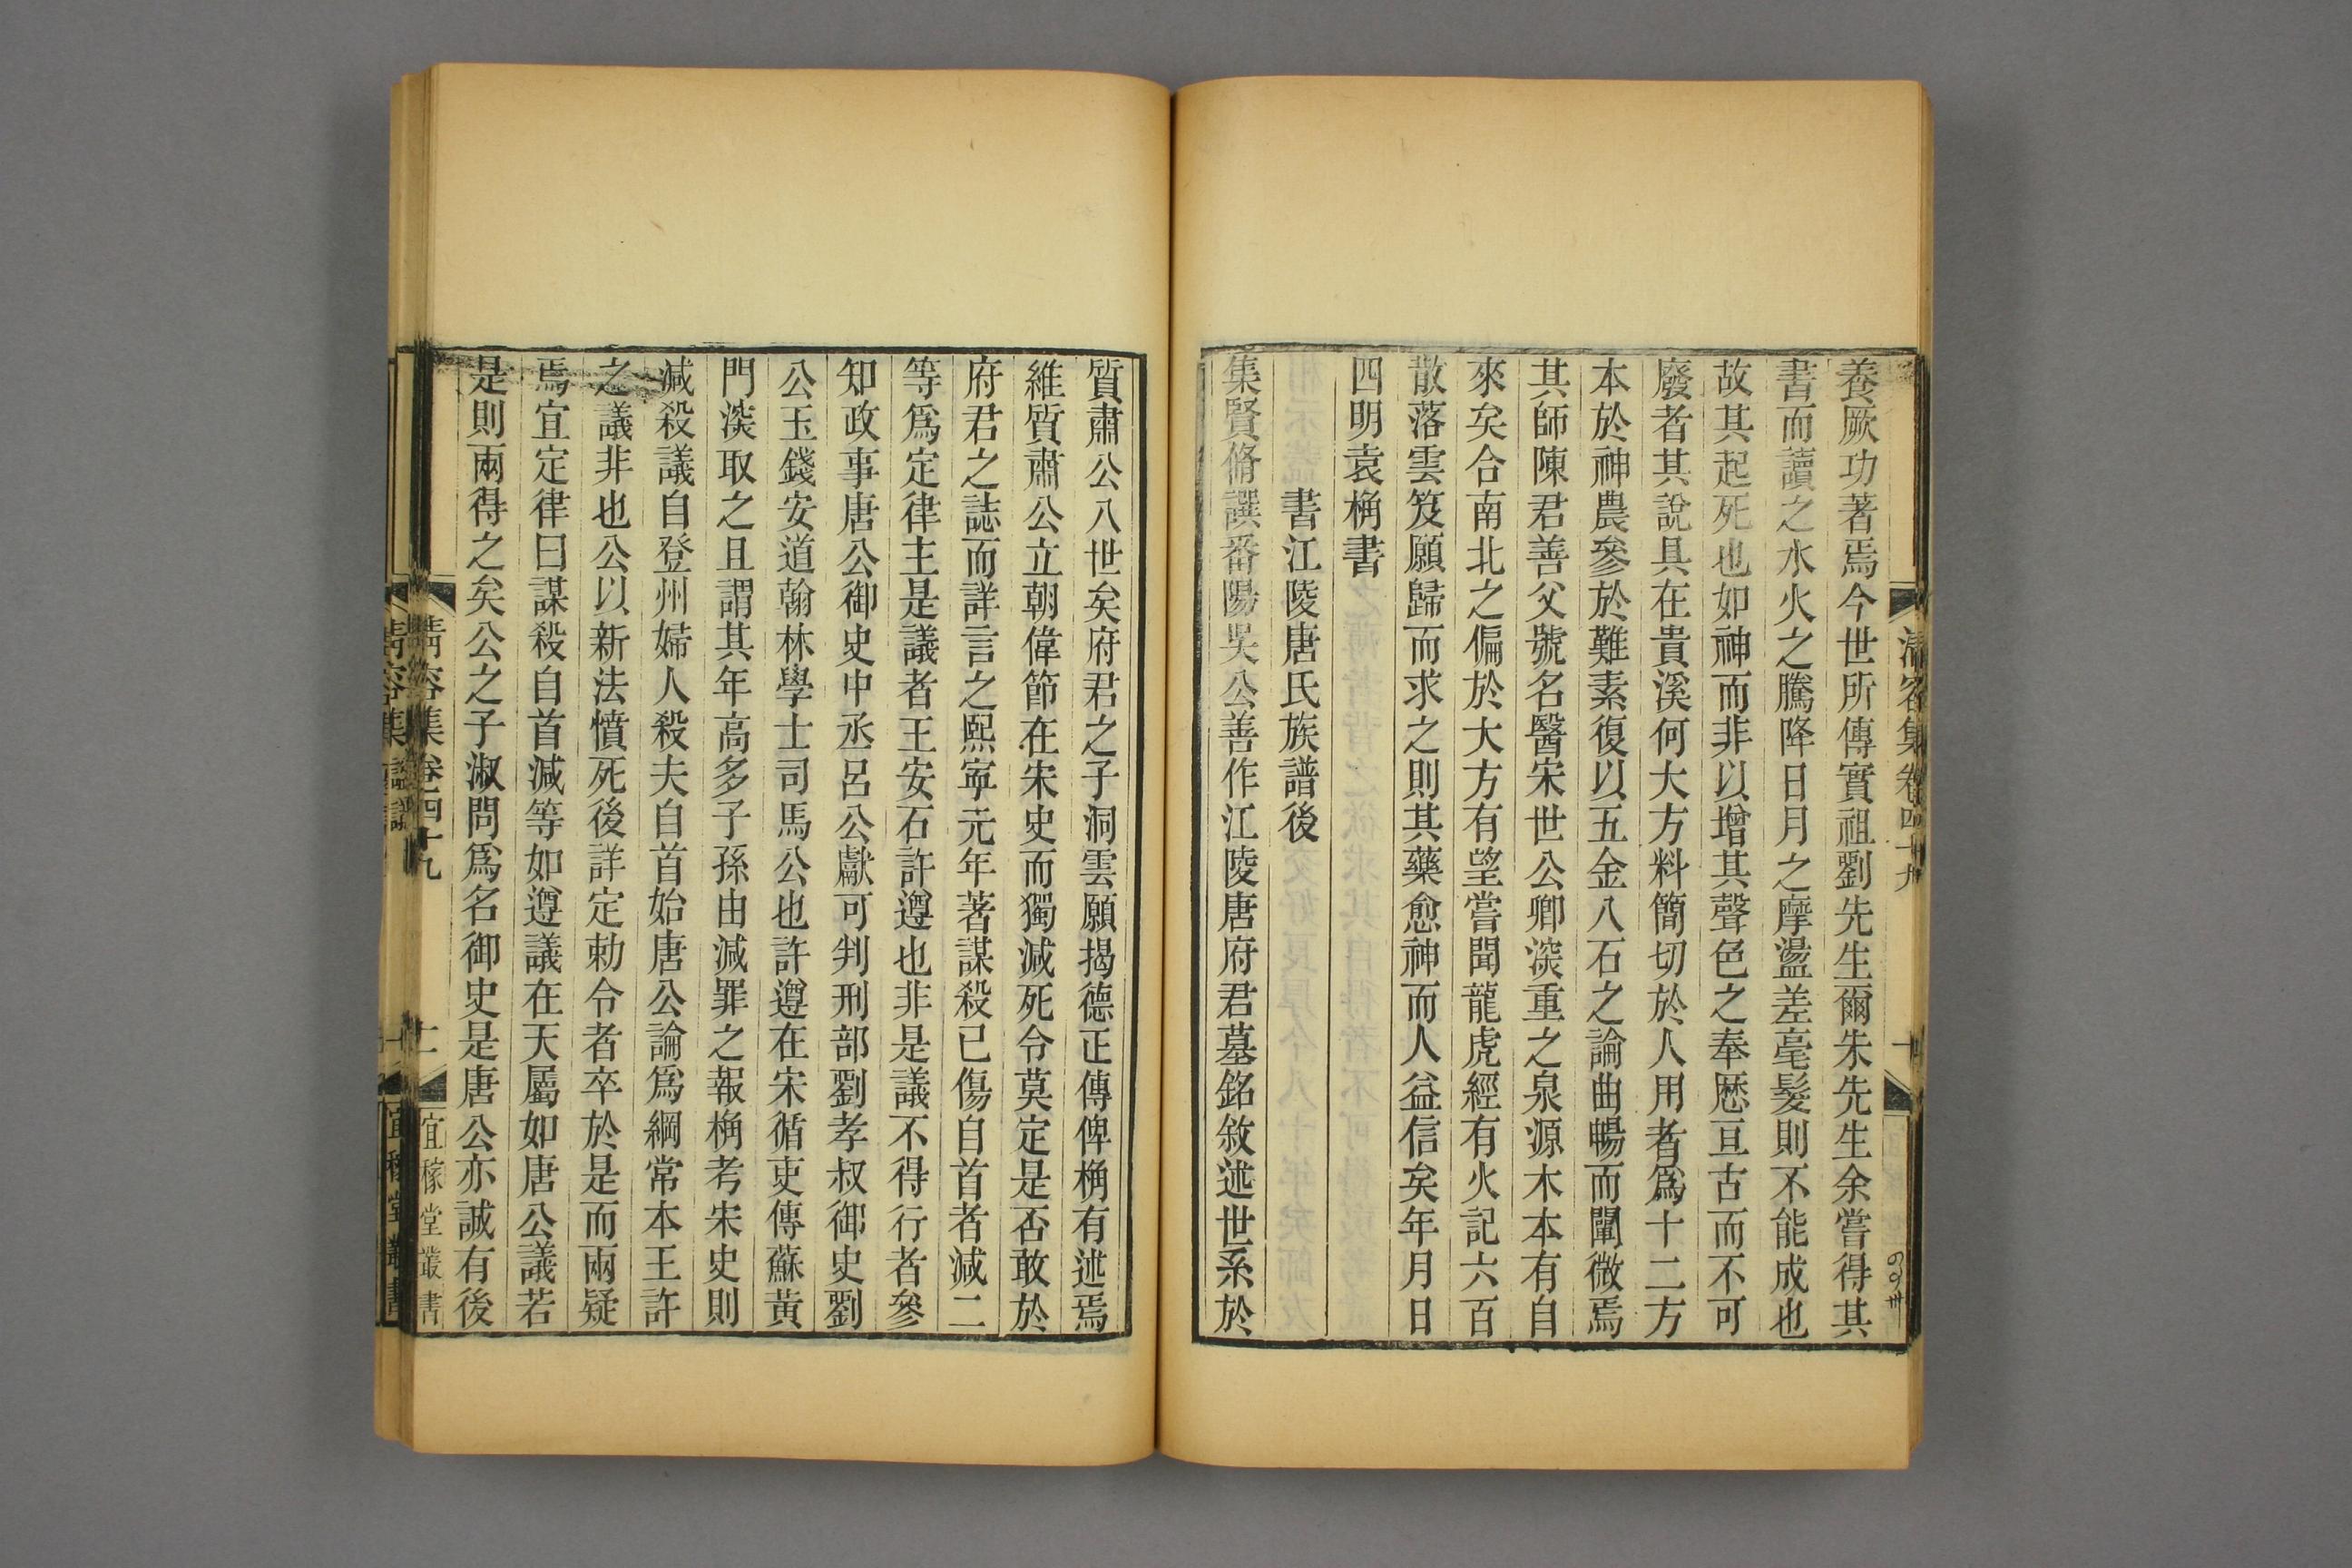 養厥功著焉今世所傳實祖劉先生爾朱先生余嘗得其
書而讀之水火之騰降日月之摩盪差毫髮則不能成也
故其起死也如神而非以增其聲色之奉歴亘古而不可
廢者其說具在貴溪何大方料簡切於人用者爲十二方
本於神農參於難素復以五金八石之論曲暢而闡微焉
其師陳君善父號名醫宋世公卿淡重之泉源木本有自
來矣合南北之偏於大方有望嘗聞龍虎經有火記六百
散落雲笈願歸而求之則其藥愈神而人益信矣年月日
四明袁桷書
書江陵唐氏族譜後
集賢脩譔番陽吳公善作江陵唐府君墓銘敘述世系於
質肅公八世矣府君之子洞雲願揭德正傳俾桷有述焉
維質肅公立朝偉節在宋史而獨減死令莫定是否敢於
府君之誌而詳言之熙寧元年著謀殺已傷自首者減二
等爲定律主是議者王安石許遵也非是議不得行者參
知政事唐公御史中丞呂公獻可判刑部劉孝叔御史劉
公玉錢安道翰林學士司馬公也許遵在宋循吏傳蘇黃
門淡取之且謂其年高多子孫由減罪之報桷考宋史則
減殺議自登州婦人殺夫自首始唐公論爲綱常本王許
之議非也公以新法憤死後詳定勅令者卒於是而兩疑
焉宜定律曰謀殺自首減等如遵議在天屬如唐公議若
是則兩得之矣公之子淑問爲名御史是唐公亦誠有後
清容集卷四十九
二
宜稼堂叢書